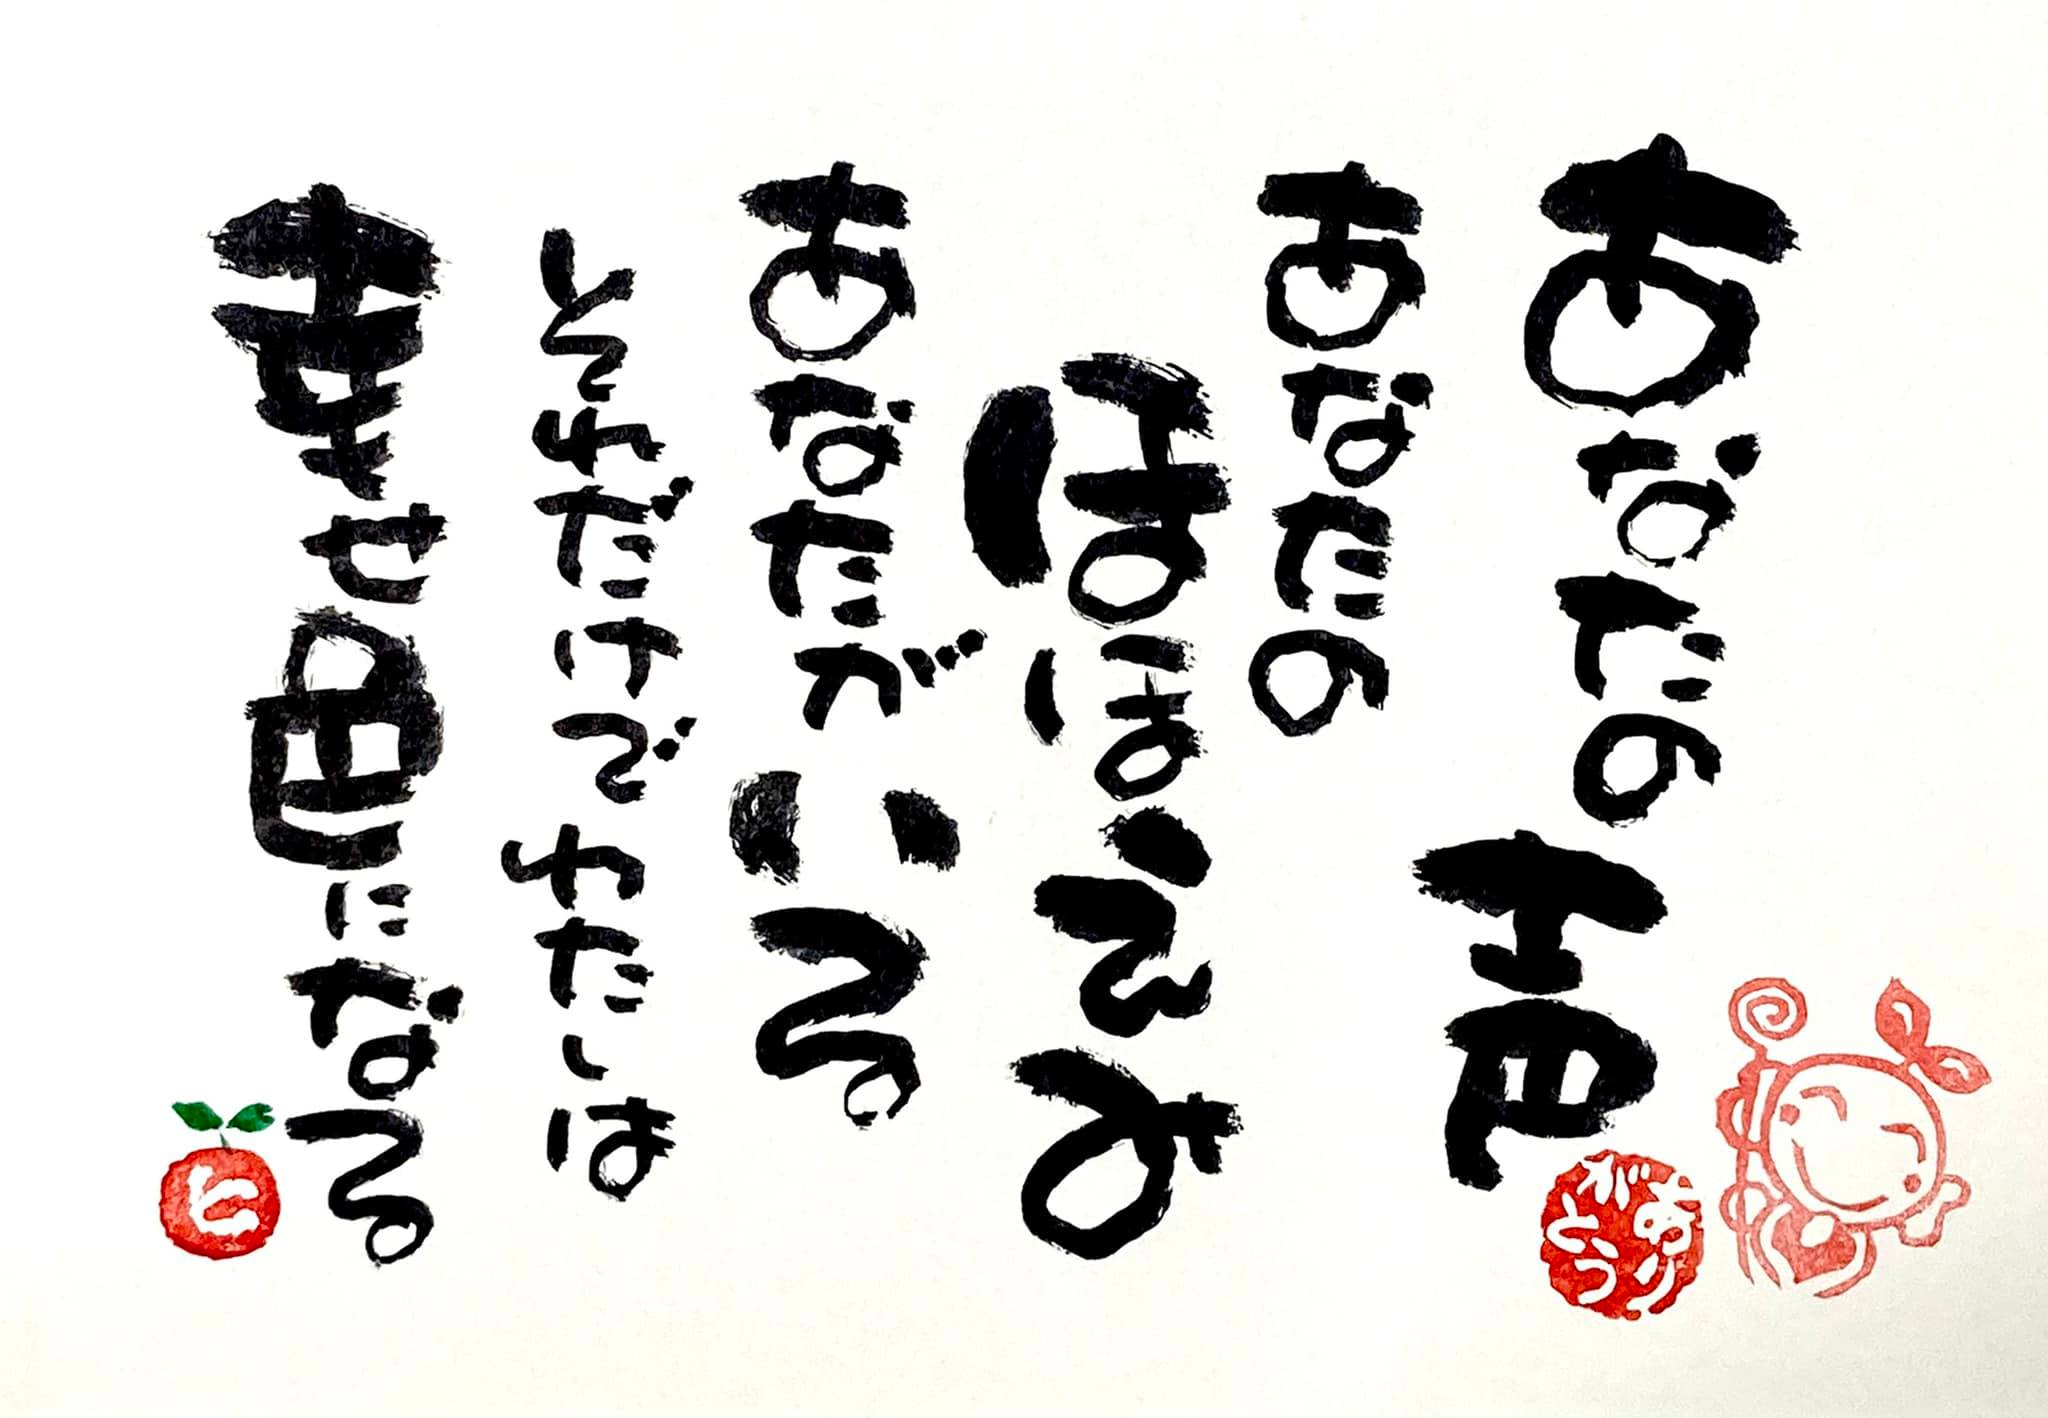 あなたの声
あなたの
ほほえみ
あなたがいる
それだけでわたしは
幸せ色になる
ありがとう
ヒ